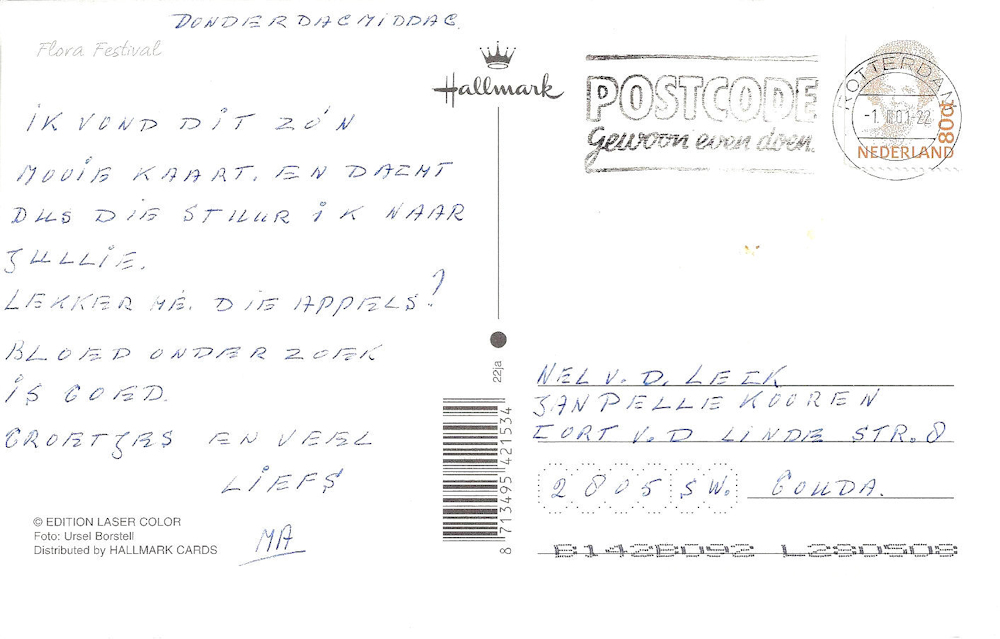 DONDERDAGMIDDAG.
Flora Festival
Hallmark
POSTCODE
Gewoon even doen.
ROTTERDAM
80ct
NEDERLAND
IK VOND DIT ZÓN
MOOIE KAART. EN DACHT
DUS DIE STUUR IK NAAR
JULLIE.
LEKKER HÉ. DIE APPELS?
BLOED ONDERZOEK
IS GOED.
GROETJES EN VEEL
LIEFS
MA
© EDITION LASER COLOR
Foto: Ursel Borstell
Distributed by HALLMARK CARDS
22ja
8 713495 421534
NEL V.D. LECK
JAN PELLE KOOREN
CORT V.D LINDE STR. 8
2805 SW. GOUDA.
B142B092 L280508